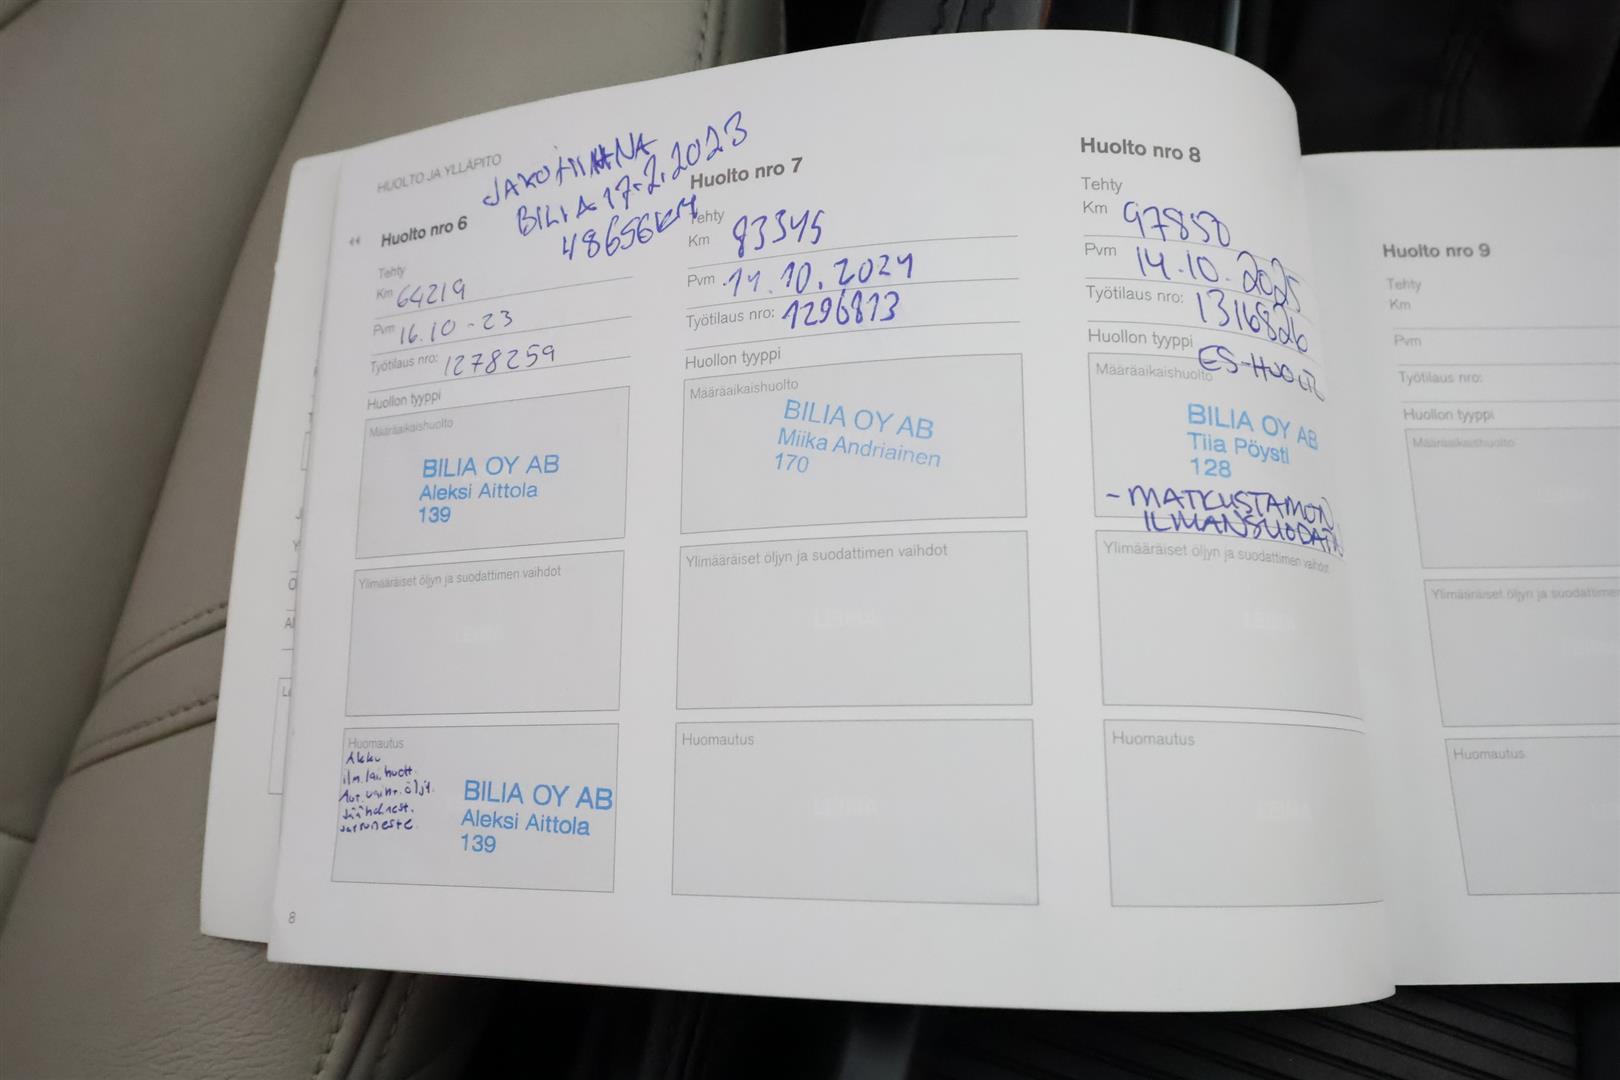 HUOLTO JA YLLÄPITO
JAKOHIHNA
BILIA 17.2.2023
48656KM
Huolto nro 6
Tehty
Km 64219
Pvm 16.10-23
Työtilaus nro: 1278259
Huollon tyyppi
Määräaikaishuolto
BILIA OY AB
Aleksi Aittola
139
Ylimääräiset öljyn ja suodattimen vaihdot
Huomautus
Akku
BILIA OY AB
Aleksi Aittola
139
8
Huolto nro 7
Tehty
Km 83345
Pvm 14.10.2024
Työtilaus nro: 1296813
Huollon tyyppi
Määräaikaishuolto
BILIA OY AB
Miika Andriainen
170
Ylimääräiset öljyn ja suodattimen vaihdot
Huomautus
Huolto nro 8
Tehty
Km 97850
Pvm 14.10.2025
Työtilaus nro: 1316826
Huollon tyyppi
Määräaikaishuolto
BILIA OY AB
Tiia Pöysti
128
- MATKUSTAMON
Ylimääräiset öljyn ja suodattimen vaihdot
Huomautus
Huolto nro 9
Tehty
Km
Pvm
Työtilaus nro:
Huollon tyyppi
Määräaikaishuolto
Ylimääräiset öljyn ja suodattimen
Huomautus